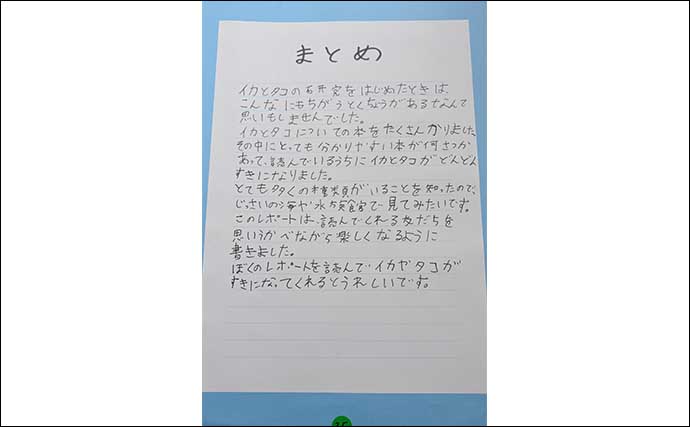 まとめ
イカとタコの研究をはじめたときは、
こんなにもちがうとくちょうがあるなんて
思いもしませんでした。
イカとタコについての本をたくさんかりました。
その中にとっても分かりやすい本が何さつか
あって、読んでいるうちにイカとタコがどんどん
すきになりました。
とても多くの種類がいることを知ったので、
じっさいの海や水ぞく館で見てみたいです。
このレポートは、読んでくれる友だちを
思いうかべながら楽しくなるように
書きました。
ぼくのレポートを読んでイカやタコが
すきになってくれるとうれしいです。